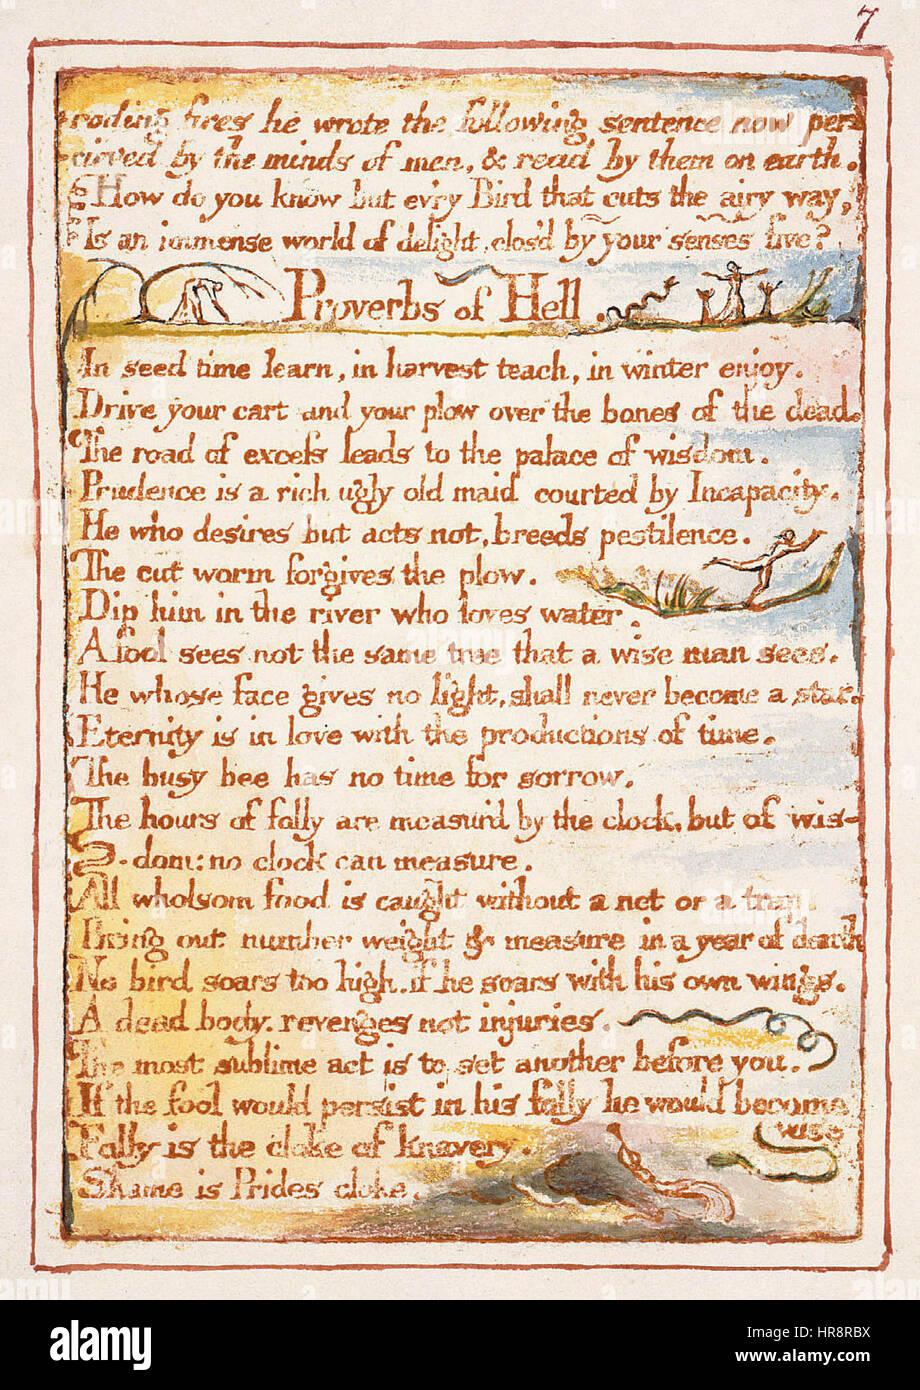 7
roding fires he wrote the following sentence now per=
=cieved by the minds of men, & read by them on earth.
How do you know but ev'ry Bird that cuts the airy way,
Is an immense world of delight, clos'd by your senses five?
Proverbs of Hell.
In seed time learn, in harvest teach, in winter enjoy.
Drive your cart and your plow over the bones of the dead.
The road of excess leads to the palace of wisdom.
Prudence is a rich ugly old maid courted by Incapacity.
He who desires but acts not, breeds pestilence.
The cut worm forgives the plow.
Dip him in the river who loves water.
A fool sees not the same tree that a wise man sees.
He whose face gives no light, shall never become a star.
Eternity is in love with the productions of time.
The busy bee has no time for sorrow.
The hours of folly are measur'd by the clock, but of wis-
-dom: no clock can measure.
All wholsom food is caught without a net or a trap.
Bring out number weight & measure in a year of dearth
No bird soars too high. if he soars with his own wings.
A dead body. revenges not injuries.
The most sublime act is to set another before you.
If the fool would persist in his folly he would become
wise
Folly is the cloke of knavery.
Shame is Prides cloke.
alamy
Image ID: HR8RBX
www.alamy.com